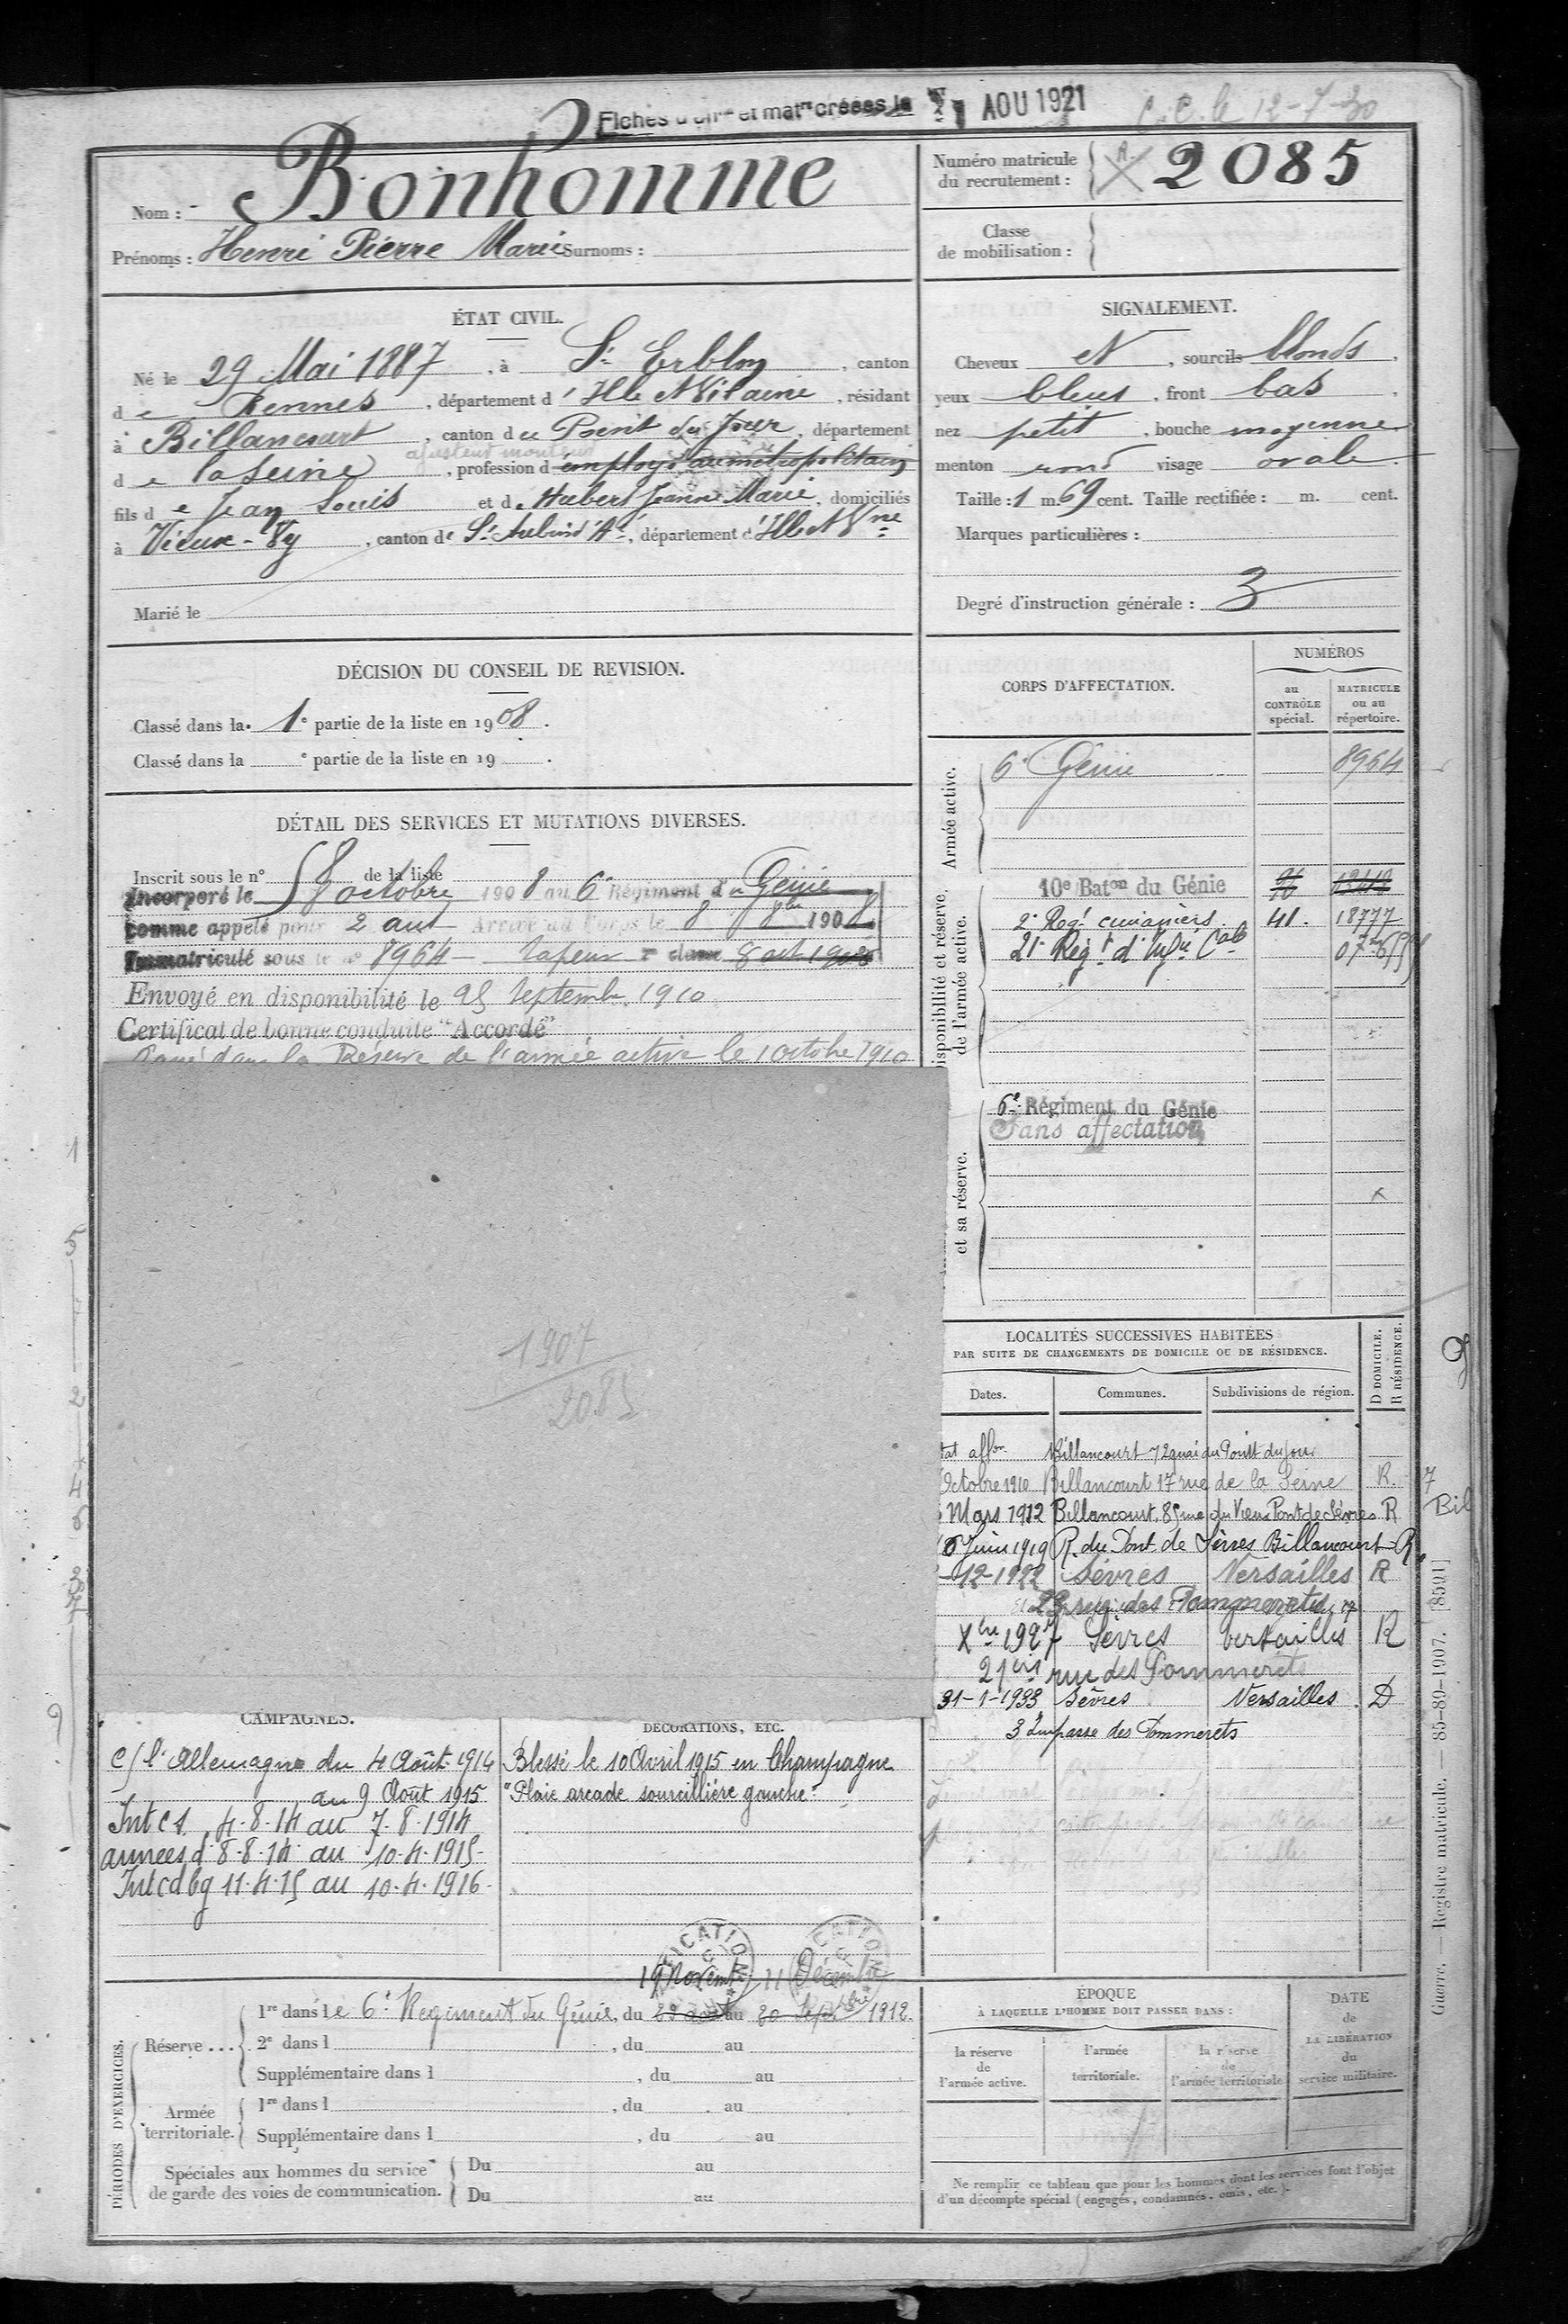 AOU 1921
C.C. le 12-7-30
Nom : Bonhomme
Prénoms : Henri Pierre Marie Surnoms :
Numéro matricule du recrutement : 2085
Classe de mobilisation :
ÉTAT CIVIL.
Né le 29 Mai 1887, à St Erblon, canton
de Rennes, département d'Ille & Vilaine, résidant
à Billancourt, canton du Point du Jour, département
ajusteur monteur
de la Seine, profession d employé au métropolitain
fils de Jean Louis et de Hubert Jeanne Marie, domiciliés
à Vieux-Vy, canton de St Aubin d'A., département d'Ille & Vne
Marié le
SIGNALEMENT.
Cheveux , sourcils blonds,
yeux bleus, front bas,
nez petit, bouche moyenne
menton rond visage ovale.
Taille : 1 m. 69 cent. Taille rectifiée : m. cent.
Marques particulières :
Degré d'instruction générale : 3
DÉCISION DU CONSEIL DE REVISION.
Classé dans la 1e partie de la liste en 1908.
Classé dans la e partie de la liste en 19 .
DÉTAIL DES SERVICES ET MUTATIONS DIVERSES.
Inscrit sous le n° de la liste
Incorporé le 8 octobre 1908 au 6e Régiment du Génie
comme appelé pour 2 ans Arrivé au Corps le 8 8bre 1908
Immatriculé sous le n° 8964 sapeur 2e classe 8 oct 1908
Envoyé en disponibilité le 25 Septembre 1910
Certificat de bonne conduite "Accordé"
Passé dans la Réserve de l'armée active le 1 octobre 1910
1907
2085
CORPS D'AFFECTATION.
NUMÉROS
au CONTRÔLE spécial.
MATRICULE ou au répertoire.
Armée active.
6e Génie 8964
Disponibilité et réserve de l'armée active.
10e Baton du Génie
2e Regt cuirassiers 41. 18777
21e Regt d'Infie Cale
et sa réserve.
6e Régiment du Génie
Sans affectation
LOCALITÉS SUCCESSIVES HABITÉES
PAR SUITE DE CHANGEMENTS DE DOMICILE OU DE RÉSIDENCE.
Dates. Communes. Subdivisions de région. D DOMICILE. R RÉSIDENCE.
Billancourt 72 quai du Point du Jour
Octobre 1910 Billancourt 17 rue de la Seine R.
Mars 1912 Billancourt, 85 rue du Vieux Pont de Sèvres R
Juin 1919 R. du Pont de Sèvres Billancourt R
-12-1922 Sèvres Versailles R
23 rue des Pommerets
Xbre 1927 Sèvres Versailles R
21bis rue des Pommerets
31-1-1933 Sèvres Versailles D
3 Impasse des Pommerets
CAMPAGNES.
C/ l'Allemagne du 4 Août 1914
au 9 Août 1915
Int c1. 4.8.14 au 7.8.1914
armées d 8.8.14 au 10.4.1915
Int cd bg 11.4.15 au 10.4.1916
DÉCORATIONS, ETC.
Blessé le 10 Avril 1915 en Champagne
"Plaie arcade sourcilière gauche"
PÉRIODES D'EXERCICES.
19 Novembre 11 Décembre
Réserve... 1re dans le 6e Régiment du Génie, du 29 août au 20 Septbre 1912.
2e dans l , du au
Supplémentaire dans l , du au
Armée territoriale. 1re dans l , du au
Supplémentaire dans l , du au
Spéciales aux hommes du service de garde des voies de communication.
Du au
Du au
ÉPOQUE
À LAQUELLE L'HOMME DOIT PASSER DANS :
la réserve de l'armée active.
l'armée territoriale.
la réserve de l'armée territoriale
DATE de LA LIBÉRATION du service militaire.
Ne remplir ce tableau que pour les hommes dont les services font l'objet
d'un décompte spécial (engagés, condamnés, omis, etc.).
Guerre. — Registre matricule. — 85-89-1907. [8591]
Bil